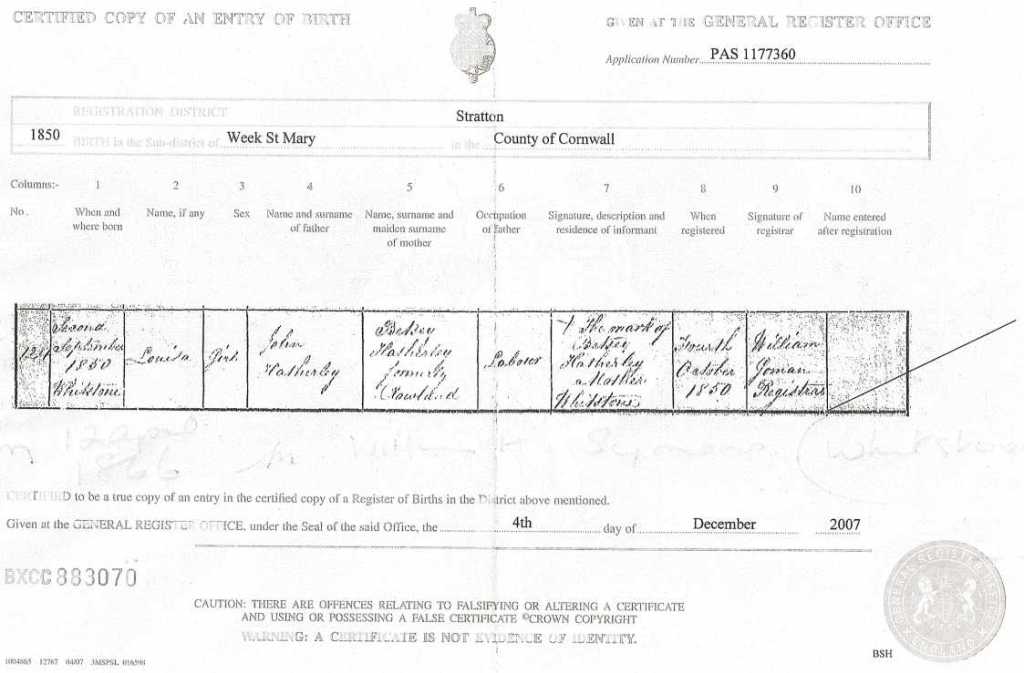 CERTIFIED COPY OF AN ENTRY OF BIRTH
GIVEN AT THE GENERAL REGISTER OFFICE
Application Number PAS 1177360
REGISTRATION DISTRICT Stratton
1850 BIRTH in the Sub-district of Week St Mary in the County of Cornwall
Columns:- 1 2 3 4 5 6 7 8 9 10
No. When and Name, if any Sex Name and surname Name, surname and Occupation Signature, description and When Signature of Name entered
where born of father maiden surname of father residence of informant registered registrar after registration
of mother
Second
September
1850
Whitstone
Louisa
Girl
John
Hatherley
Betsey
Hatherley
formerly
Rowland
Laborer
X The mark of
Betsey
Hatherley
a Mother
Whitstone
Fourth
October
1850
William
Registrar
12 april
1866 William H. Seymour (Whitstone
CERTIFIED to be a true copy of an entry in the certified copy of a Register of Births in the District above mentioned.
Given at the GENERAL REGISTER OFFICE, under the Seal of the said Office, the 4th day of December 2007
BXCC 883070
CAUTION: THERE ARE OFFENCES RELATING TO FALSIFYING OR ALTERING A CERTIFICATE
AND USING OR POSSESSING A FALSE CERTIFICATE ©CROWN COPYRIGHT
WARNING: A CERTIFICATE IS NOT EVIDENCE OF IDENTITY.
GENERAL REGISTER OFFICE
ENGLAND
BSH